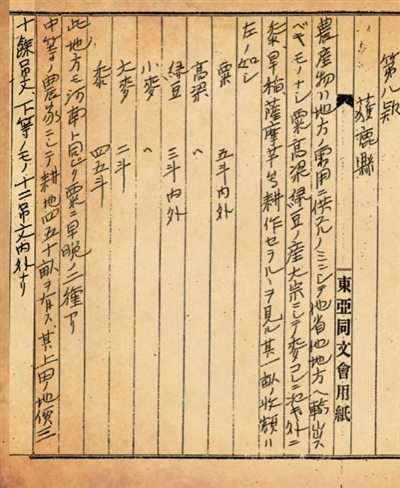 第八款
獲鹿縣
東亞同文會用紙
農産物ハ地方ノ需用ニ供スルノミニシテ他省他地方ヘ輸出ス
ベキモノナシ粟高梁緑豆ノ産大宗ニシテ麥コレニ次キ外ニ
黍旱稲薩摩芋等耕作セラルヽヲ見ル其一畝ノ收額ハ
左ノ如シ
粟 五斗内外
高梁 〃
緑豆 三斗内外
小麥 〃
大麥 二斗
黍 四五斗
此地方モ河南ト同ジク粟ニ早晩ノ二種アリ
中等ノ農家ニシテ耕地四五十畝ヲ有ス其上田ノ地價三
十餘吊文下等ノモノ十二吊文内外ナリ